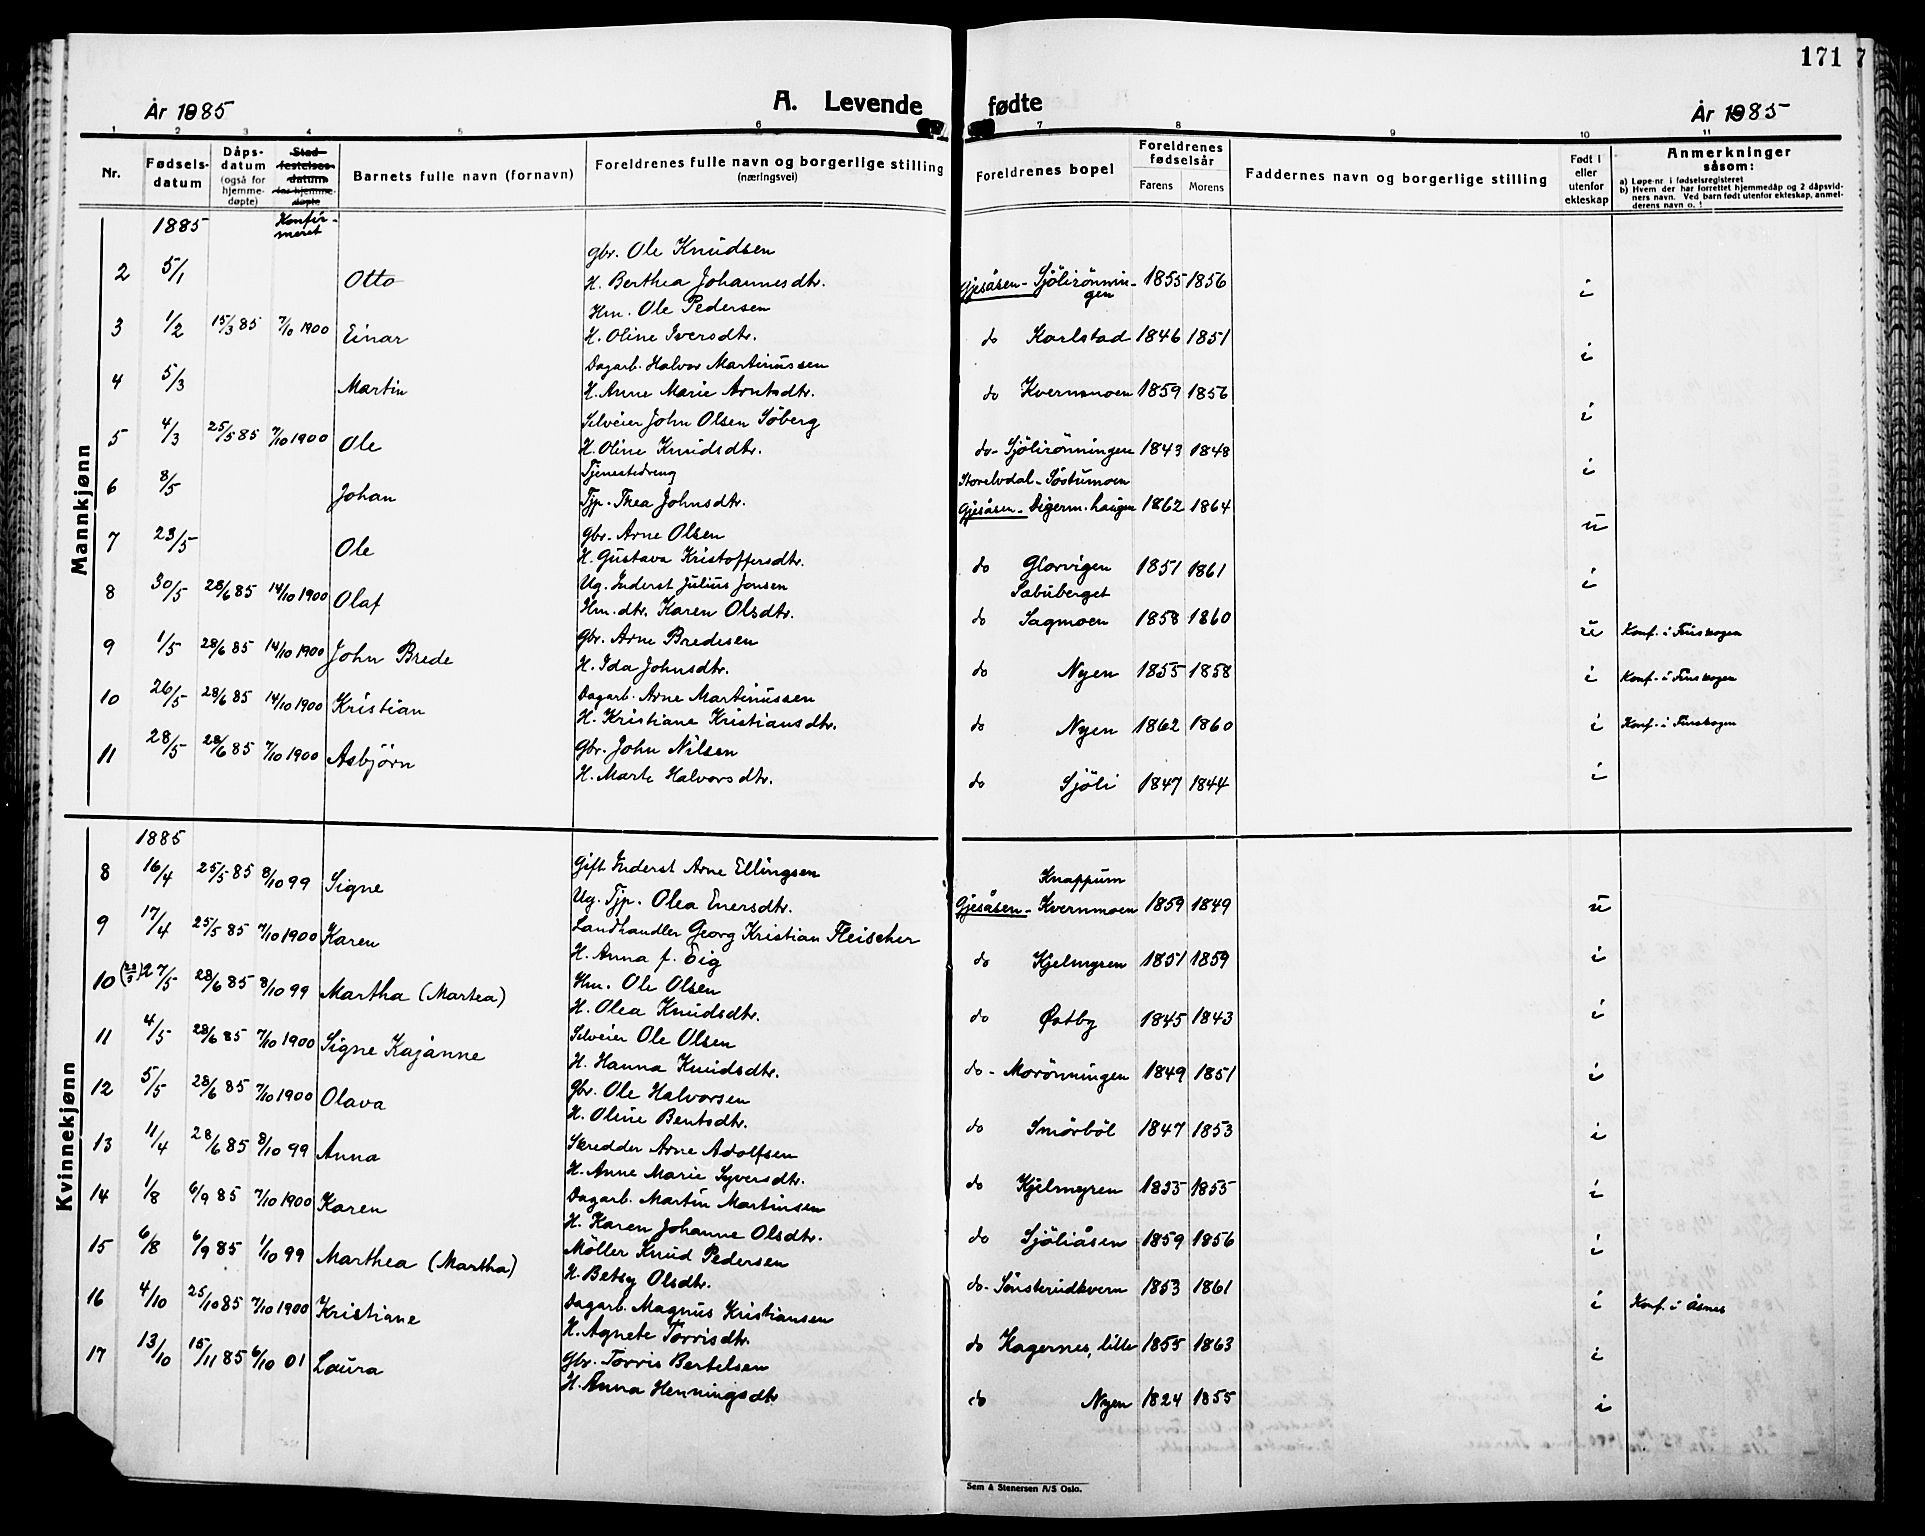 171
År 1885 A. Levende fødte År 1885
1 2 3 4 5 6 7 8 9 10 11
Nr. Fødselsdatum Dåpsdatum (også for hjemmedøpte) Stadfestelsesdatum for hjemmedøpte Konfirmeret Barnets fulle navn (fornavn) Foreldrenes fulle navn og borgerlige stilling (næringsvei) Foreldrenes bopel Foreldrenes fødselsår Farens Morens Faddernes navn og borgerlige stilling Født i eller utenfor ekteskap Anmerkninger såsom:
a) Løpe-nr. i fødselsregisteret
b) Hvem der har forrettet hjemmedåp og 2 dåpsvidners navn. Ved barn født utenfor ekteskap, anmelderens navn o. l.
Mannkjønn
1885
gbr. Ole Knudsen
2 5/1 Otto H. Berthea Johannesdtr. Gjesåsen - Sjölirönningen 1855 1856 i
Hm. Ole Pedersen
3 1/2 15/3 85 7/10 1900 Einar H. Oline Iversdtr. do Karlstad 1846 1851 i
Dagarb. Halvor Martinussen
4 5/3 Martin H. Anne Marie Arntsdtr. do Kvernmoen 1859 1856 i
Selveier John Olsen Söberg
5 4/3 25/5 85 7/10 1900 Ole H. Oline Knudsdtr. do - Sjölirönningen 1843 1848 i
Tjenestedreng Storelvdal - Söstumoen
6 8/5 Johan Tjp. Thea Johnsdtr. Gjesåsen - Digerm.haugen 1862 1864 u
gbr. Arne Olsen
7 23/5 Ole H. Gustava Kristoffersdtr. do Glorvigen 1851 1861 i
Ug. Inderst Julius Jonsen Sæbuberget
8 30/5 28/6 85 14/10 1900 Olaf Hm.dtr. Karen Olsdtr. do Sagmoen 1858 1860 u Konf. i Finskogen
gbr. Arne Bredesen
9 1/5 28/6 85 14/10 1900 John Brede H. Ida Johnsdtr. do Nyen 1855 1858 i Konf. i Finskogen
Dagarb. Arne Martinussen
10 26/5 28/6 85 14/10 1900 Kristian H. Kristiane Kristiansdtr. do Nyen 1862 1860 i Konf. i Finskogen
gbr. John Nilsen
11 28/5 28/6 85 7/10 1900 Asbjørn H. Marte Halvorsdtr. do Sjöli 1847 1844 i
Kvinnekjønn
1885
Gift Inderst Arne Ellingsen Knappum
8 16/4 25/5 85 8/10 99 Signe Ug. Tjp. Olea Enersdtr. Gjesåsen - Kvernmoen 1859 1849 u
Landhandler Georg Kristian Fleischer
9 17/4 25/5 85 7/10 1900 Karen H. Anna f. Eig do Kjelmyren 1851 1859 i
Hm. Ole Olsen
10 27/5 28/6 85 8/10 99 Martha (Martea) H. Olea Knudsdtr. do Østby 1845 1843 i
Selveier Ole Olsen
11 4/5 28/6 85 7/10 1900 Signe Kajanne H. Hanna Knudsdtr. do - Morönningen 1849 1851 i
gbr. Ole Halvorsen
12 5/5 28/6 85 7/10 1900 Olava H. Oline Berntsdtr. do Smörböl 1847 1853 i
Skredder Arne Adolfsen
13 11/4 28/6 85 8/10 99 Anna H. Anne Marie Syversdtr. do Kjelmyren 1855 1855 i
Dagarb. Martin Martinsen
14 1/8 6/9 85 7/10 1900 Karen H. Karen Johanne Olsdtr. do Sjöliåsen 1859 1856 i
Möller Knud Pedersen
15 6/8 6/9 85 1/10 99 Marthea (Martha) H. Betsy Olsdtr. do - Sönsterudkvern 1853 1861 i Konf. i Åsnes
Dagarb. Magnus Kristiansen
16 4/10 25/10 85 7/10 1900 Kristiane H. Agnete Torrisdtr. do Kagernes, lille 1855 1863 i
gbr. Torris Bertelsen
17 13/10 15/11 85 6/10 01 Laura H. Anna Henningsdtr do Nyen 1824 1855 i
Sem & Stenersen A/S Oslo.